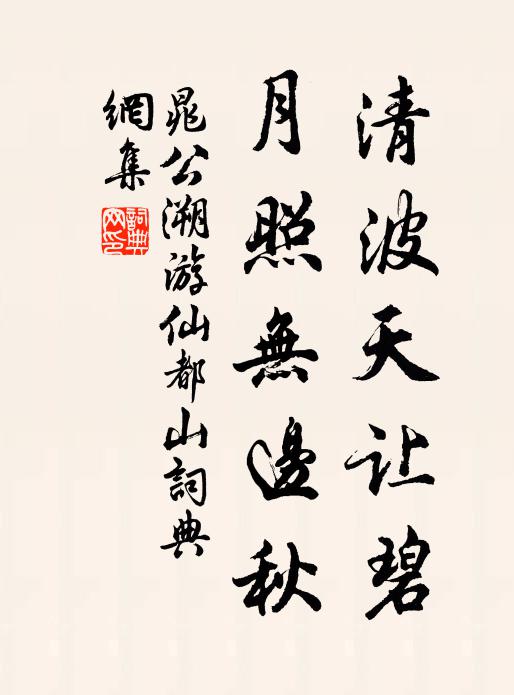 清波天让碧
月照無邊秋
晁公溯游仙都山詞典
網集
詞典
网印